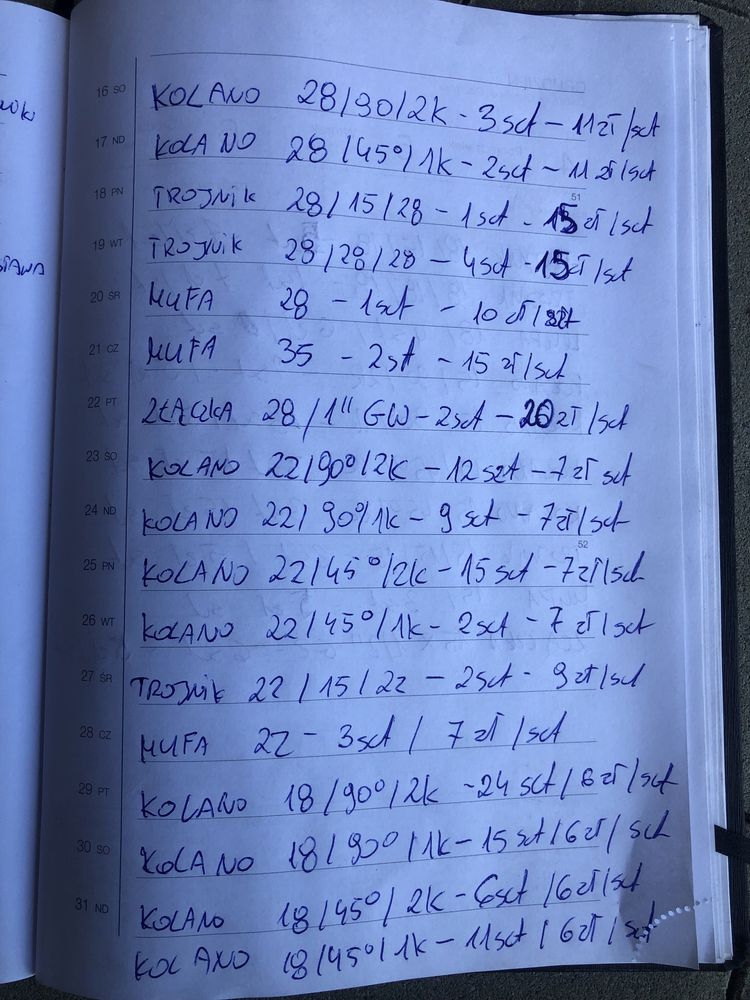 16 SO KOLANO 28/90/2K - 3szt - 11zł/szt
17 ND KOLANO 28/45°/1K - 2szt - 11zł/szt
51
18 PN TROJNIK 28/15/28 - 1szt - 15zł/szt
19 WT TROJNIK 28/28/28 - 4szt - 15zł/szt
20 ŚR MUFA 28 - 1szt - 10 zł/szt
21 CZ MUFA 35 - 2szt - 15 zł/szt
22 PT ZŁĄCZKA 28/1" GW - 2szt - 20zł/szt
23 SO KOLANO 22/90°/2K - 12 szt - 7 zł szt
24 ND KOLANO 22/90°/1K - 9 szt - 7zł/szt
52
25 PN KOLANO 22/45°/2K - 15szt - 7zł/szt
26 WT KOLANO 22/45°/1K - 2szt - 7 zł/szt
27 ŚR TROJNIK 22/15/22 - 2szt - 9zł/szt
28 CZ MUFA 22 - 3szt / 7 zł/szt
29 PT KOLANO 18/90°/2K - 24 szt/6zł/szt
30 SO KOLANO 18/90°/1K - 15szt/6zł/szt
31 ND KOLANO 18/45°/2K - 6szt/6zł/szt
KOLANO 18/45°/1K - 11szt/6zł/szt